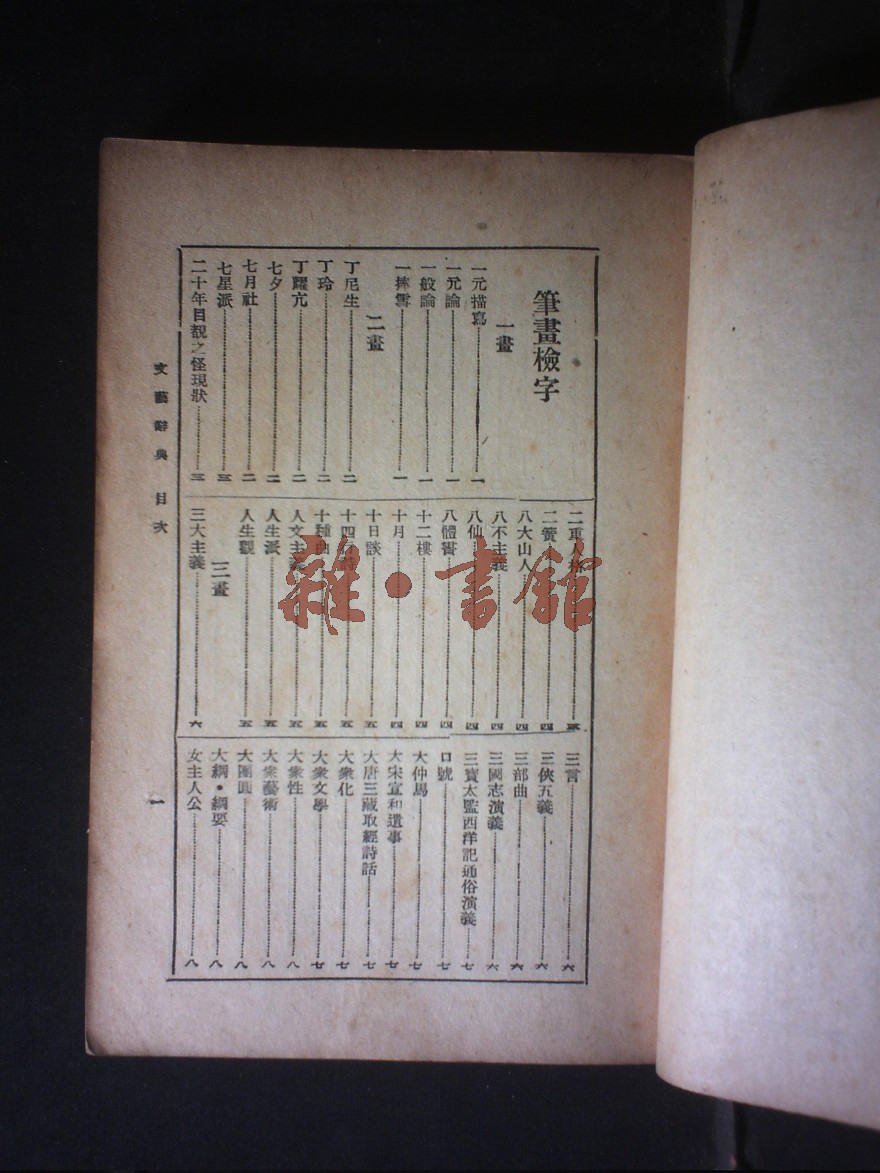 筆畫檢字
一畫
一元描寫 一
一元論 一
一般論 一
一捧雪 一
二畫
丁尼生 二
丁玲 二
丁耀亢 二
七夕 二
七月社 二
七星派 三
二十年目覩之怪現狀 三
二重人格 三
二簧 四
八大山人 四
八不主義 四
八仙 四
八體書 四
十二樓 四
十月 四
十日談 五
十四行詩 五
十種曲 五
人文主義 五
人生派 五
人生觀 五
三畫
三大主義 六
三言 六
三俠五義 六
三部曲 六
三國志演義 六
三寶太監西洋記通俗演義 七
口號 七
大仲馬 七
大宋宣和遺事 七
大唐三藏取經詩話 七
大衆化 七
大衆文學 七
大衆性 八
大衆藝術 八
大團圓 八
大綱・綱要 八
女主人公 八
文藝辭典 目次
一
雜・書館